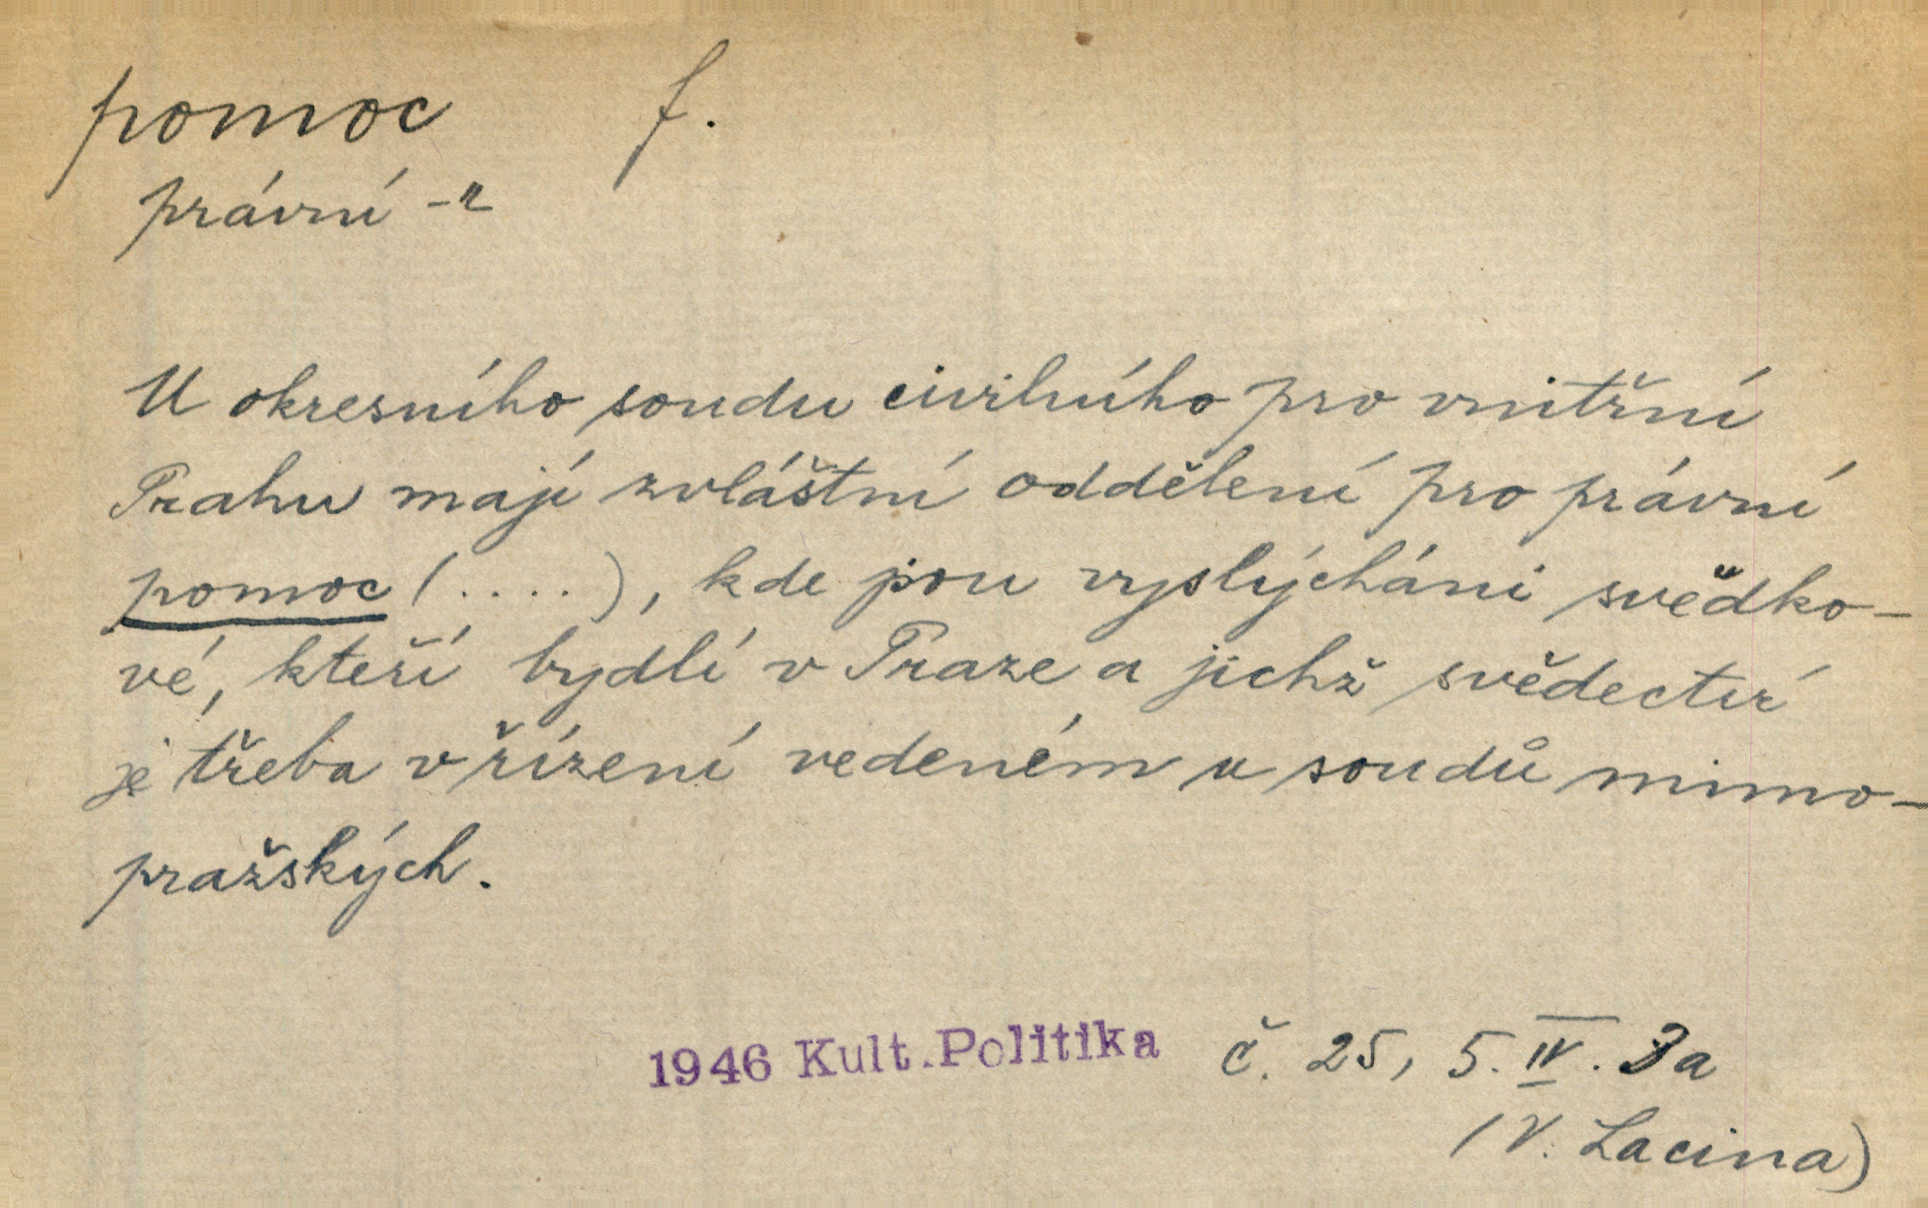 pomoc f.
právní -"-
U okresního soudu civilního pro vnitřní
Prahu mají zvláštní oddělení pro právní
pomoc (....), kde jsou vyslýcháni svědko-
vé, kteří bydlí v Praze a jichž svědectví
je třeba v řízení vedeném u soudů mimo-
pražských.
1946 Kult.Politika č. 25, 5. IV. 3a
(V. Lacina)